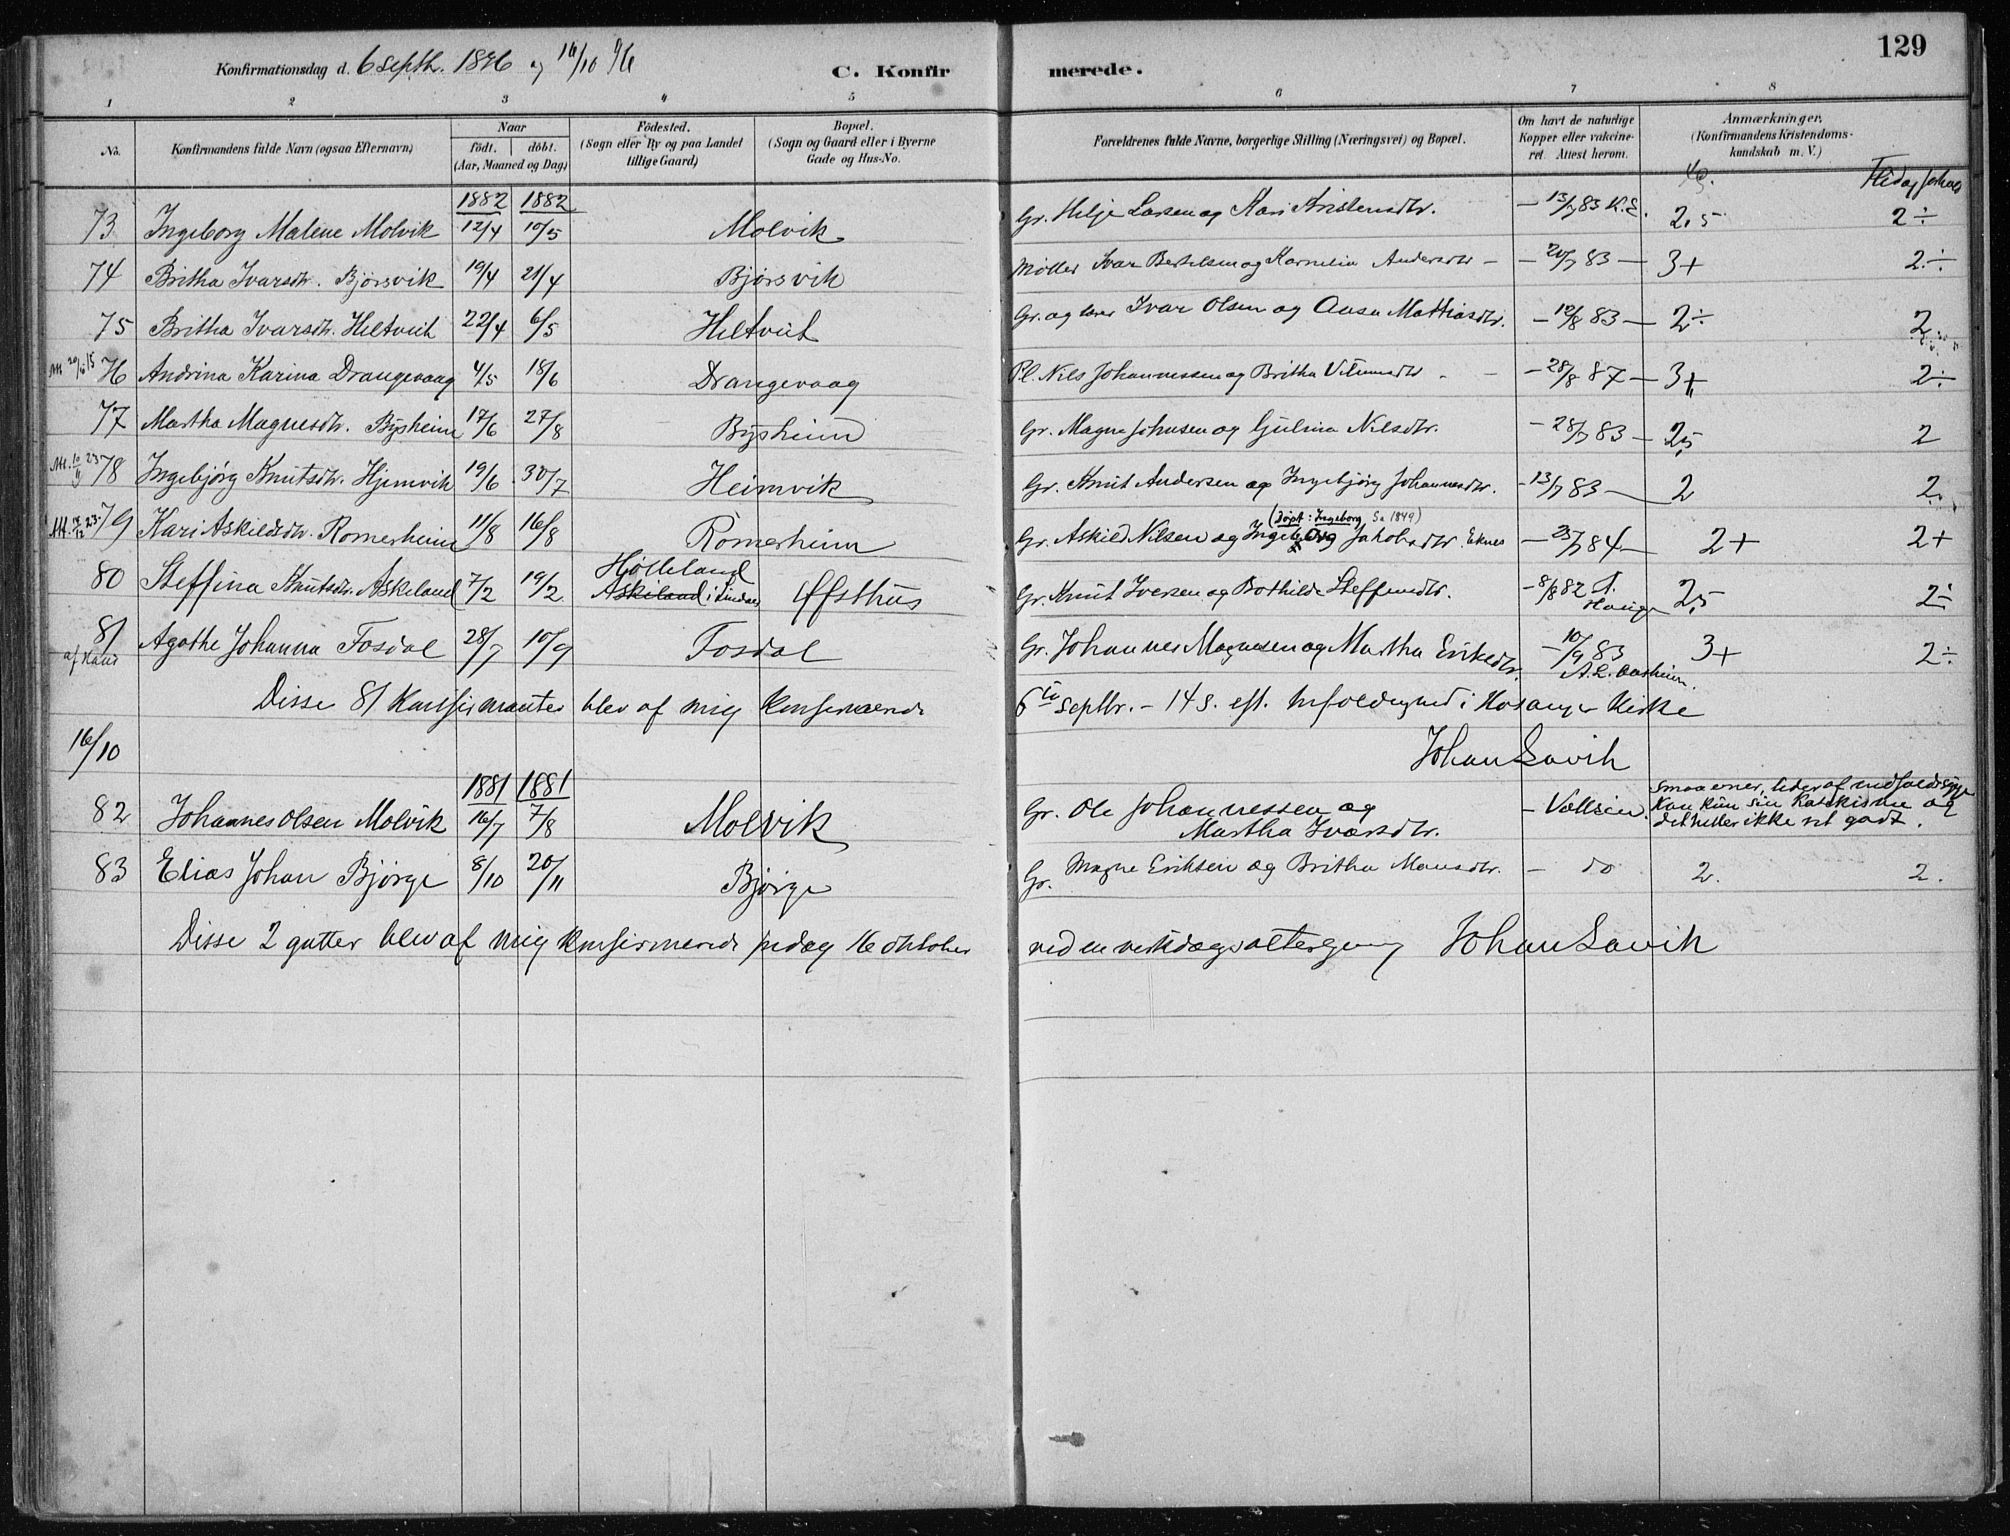 129
Konfirmationsdag d. 6 septbr. 1896 og 16/10 96
C. Konfirmerede.
1 2 3 4 5 6 7 8
No. Konfirmandens fulde Navn (ogsaa Efternavn) Naar födt. döbt. (Aar, Maaned og Dag) Födested. (Sogn eller By og paa Landet tillige Gaard) Bopæl. (Sogn og Gaard eller i Byerne Gade og Hus-No. Forældrenes fulde Navne, borgerlige Stilling (Næringsvei) og Bopæl. Om havt de naturlige Kopper eller vakcineret Attest herom. Anmærkninger. (Konfirmandens Kristendomskundskab m. V.)
Flid og forhold
1882 1882
73 Ingeborg Malene Molvik 12/4 10/5 Molvik Gr. Helje Larsen og Kari Kristensdtr. - 13/7 83 K.E. 2,5 2÷
74 Britha Ivarsdtr. Bjørsvik 19/4 21/4 Bjørsvik Møller Ivar Bertelsen og Kornelia Andersdtr - - 20/7 83 - 3+ 2÷
75 Britha Ivarsdtr. Heltveit 22/4 6/5 Heltveit Gr. og lærer Ivar Olsen og Aasa Mathiasdtr. - 12/8 83 - 2÷ 2
Att 20/6 15 76 Andrina Karina Drangevaag 4/5 18/6 Drangevaag Pl. Nils Johannessen og Britha Vilumsdtr - - - 28/8 87 - 3+ 2÷
77 Martha Magnesdtr. Bysheim 17/6 27/8 Bysheim Gr. Magne Johnsen og Gjulina Nilsdtr. - 28/7 83 - 2,5 2
Att. 10/9 23 78 Ingebjørg Knutsdtr. Hjemvik 19/6 30/7 Heimvik Gr. Knut Andersen og Ingebjørg Johannesdtr. - 13/7 83 - 2 2
Att. 23 79 Kari Askildsdtr. Romerheim 11/8 16/8 Romerheim Gr. Askild Nilsen og Ingeborg Jakobsdtr. Eknes - 23/7 84 - 2+ 2+
(döpt: Ingeborg Sa 1849)
80 Steffina Knutsdtr. Askeland 7/2 19/2 Hølleland Askeland i Lindaas Øfsthus Gr. Knut Iversen og Bothilde Steffensdtr. - 8/8 82 T. Hauge 2,5 2÷
81 Agathe Johanna Fosdal 28/7 10/9 Fosdal Gr. Johannes Magnesen og Martha Eriksdtr. - 10/9 83 A.L. Aasheim. 3+ 2÷
Disse 81 konfirmanter blev af mig konfirmerede 6te septbr. - 14 s. eft. trefoldighed i Hosanger Kirke
Johan Lavik
16/10
1881 1881
82 Johannes Olsen Molvik 16/7 7/8 Molvik Gr. Ole Johannessen og Martha Ivarsdtr. - Vaksin. smaa evner, lider af nedfaldssyge Kan kun sin Katekisme og det heller ikke ret godt.
83 Elias Johan Bjørge 8/10 20/11 Bjørge Gr. Magne Eriksen og Britha Monsdtr. - do 2. 2.
Disse 2 gutter blev af mig konfirmerede fredag 16 oktober ved en verkdagsaltergang Johan Lavik